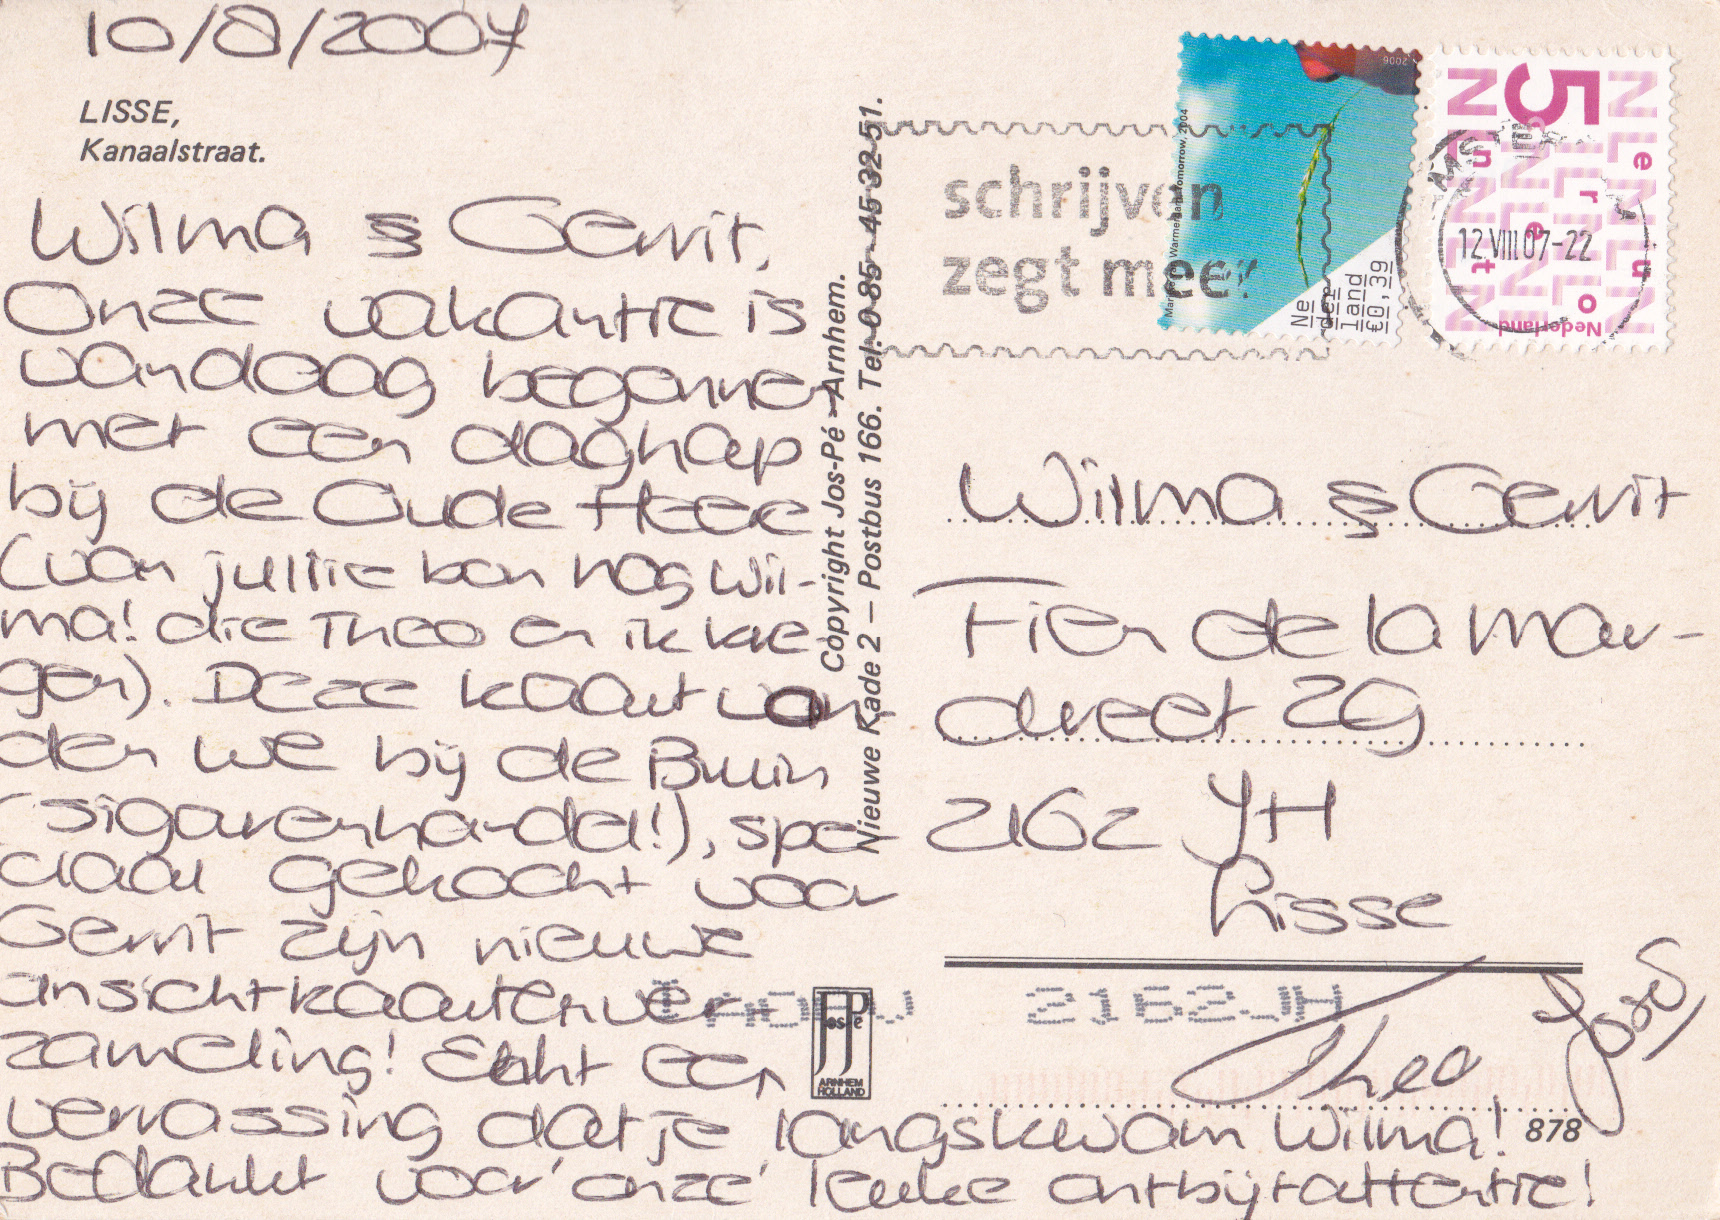 10/8/2007
LISSE,
Kanaalstraat.
Wilma & Gerrit,
Onze vakantie is
vandaag begonnen
met een daghap
bij de Oude Heer
(van jullie bon nog Wil-
ma! die Theo en ik kre-
gen). Deze kaart von-
den we bij de Bruin
(sigarenhandel!), spe-
ciaal gekocht voor
Gerrit zijn nieuwe
ansichtkaartenver-
zameling! Echt een
verrassing dat je langskwam Wilma!
Bedankt voor 'onze' leuke ontbijtattentie!
Copyright Jos-Pé - Arnhem.
Nieuwe Kade 2 – Postbus 166. Tel. 0 85 - 45 32 51.
schrijven
zegt meer
2006
Ne
der
land
€0,39
5
Nederland
12.VIII.07-22
Wilma & Gerrit
Fier de la Mar-
dreef 29
2162 JH
Lisse
2162JH
Theo
José
Jos-Pé
ARNHEM
HOLLAND
878